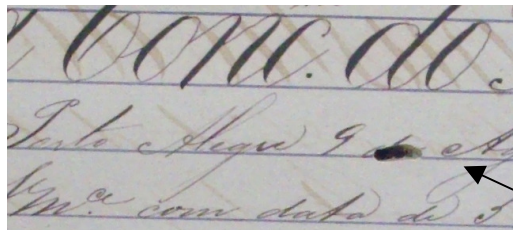 Conc. do
Porto Alegre 9 de Ag
Vmce com data de 3